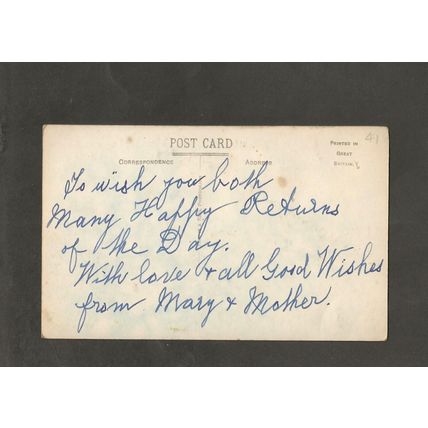 41
POST CARD
CORRESPONDENCE ADDRESS
PRINTED IN
GREAT
BRITAIN
To wish you both
Many Happy Returns
of the Day.
With love & all Good Wishes
from Mary & Mother.